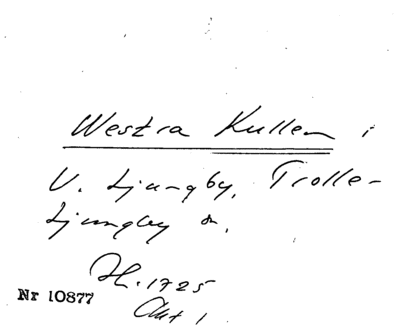 Westra Kullen i
V. Ljungby, Trolle-
Ljungby sn.
Hl. 1725
Nr 10877
Akt 1